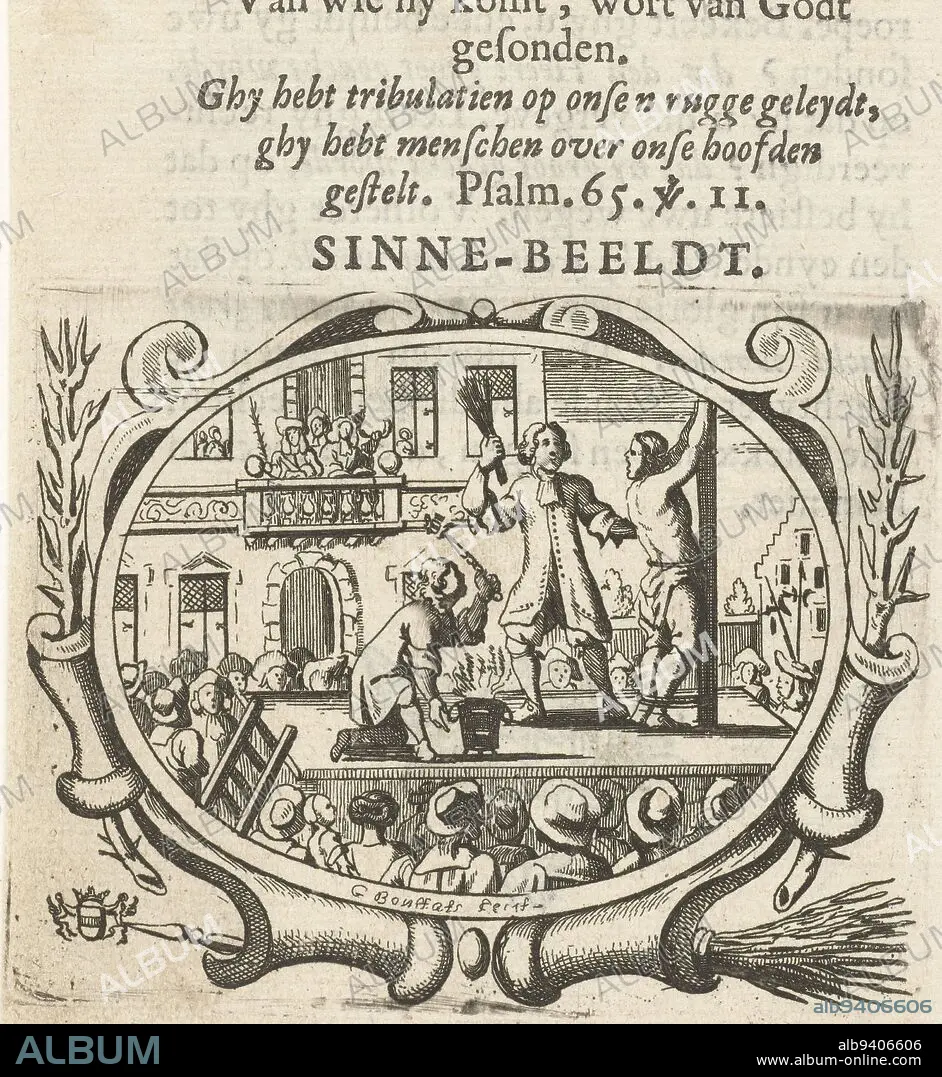 Van wie hy komt, wort van Godt
geſonden.
Ghy hebt tribulatien op onſen rugge geleydt,
ghy hebt menſchen over onſe hoofden
geſtelt. Pſalm. 65. ℣. 11.
SINNE-BEELDT.
G Bouttats fecit-
alb9406606
ALBUM
alb9406606
www.album-online.com